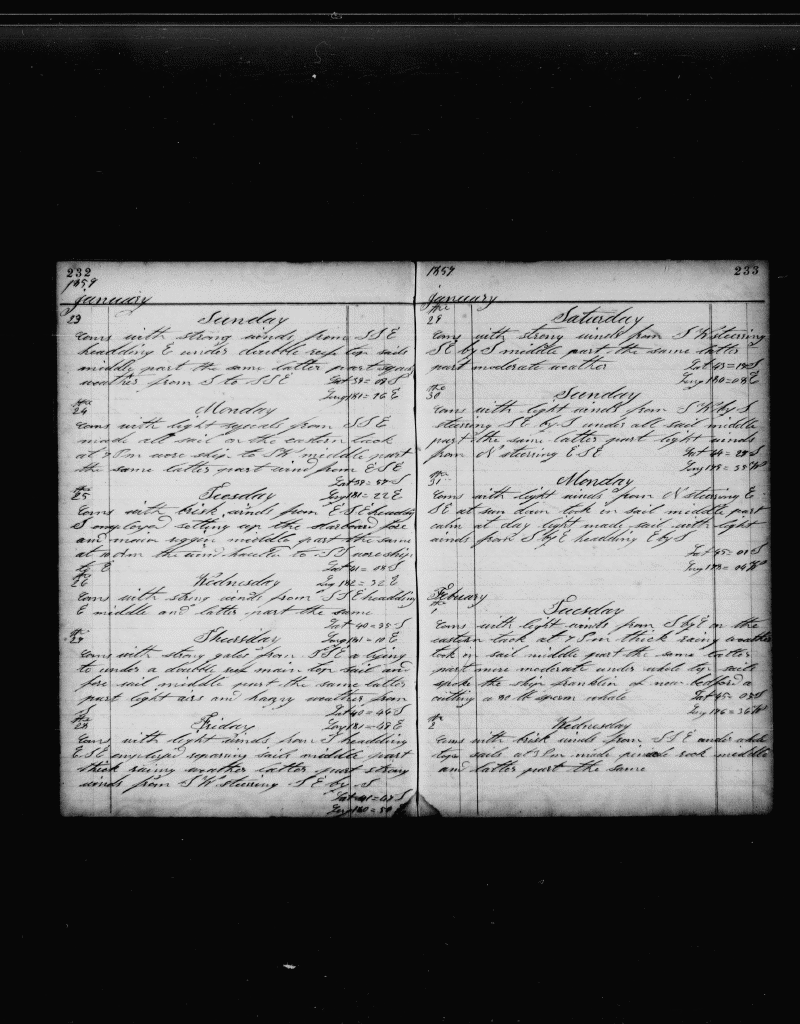 232
1859
January
23
Sunday
Coms with strong winds from SSE
headding E under double reefe top sails
middly part the same latter part squaly
weather from S to SSE Lat 39=08 S
Long 181=16 E
the
24
Monday
Coms with light squals from SSE
made all sail on the eastern tack
at 7 Pm wore ship to SW middle part
the same latter part wind from ESE
Lat 39=57 S
the
25
Teosday Long 181=22 E
Coms with brisk winds from ESE headding
S employed setting up the starboard fore
and main riggin middle part the same
at 10 Am the wind hauld to SS wore ship
to E Lat 41=08 S
the
26
Wednesday Long 182=32 E
Coms with strong winds from SSE headding
E middle and latter part the same
Lat 40=35 S
the
27
Thursday Long 181=10 E
Coms with strong gales from SSE a lying
to under a double reef main top sail and
fore sail middle part the same latter
part light airs and haizy weather from
S Lat 40=44 S
the
28
Friday Long 181=59 E
Coms with light winds from S headding
ESE employed reparing sails middle part
thick rainy weather latter part strong
winds from SW steering SE by S
Lat 41=47 S
Long 180=50 E
1859
233
January
the
29
Saturday
Coms with strong winds from SW steering
SE by S middle part the same latter
part moderate weather Lat 43=19 S
Long 180=08 E
the
30
Sunday
Coms with light winds from SW by S
steering SE by S under all sail middle
part the same latter part light winds
from N steerring ESE Lat 44=28 S
Long 179=35 W
the
31
Monday
Coms with light winds from N steerring E
SE at sun down took in sail middle part
calm at day light made sail with light
winds from S by E headding E by S
Lat 45=01 S
Long 178=04 W
February
the
1
Tuesday
Coms with light winds from S by E on the
eastern tack at 7 Pm thick rainy weather
took in sail middle part the same latter
part more moderate under whole top sails
spoke the ship franklin of new bedford a
cutting a 80 bb sperm whale Lat 45=03 S
Long 176=36 W
the
2
Wednesday
Coms with brisk winds from SSE under whole
top sails at 3 Pm made rock middle
and latter part the same